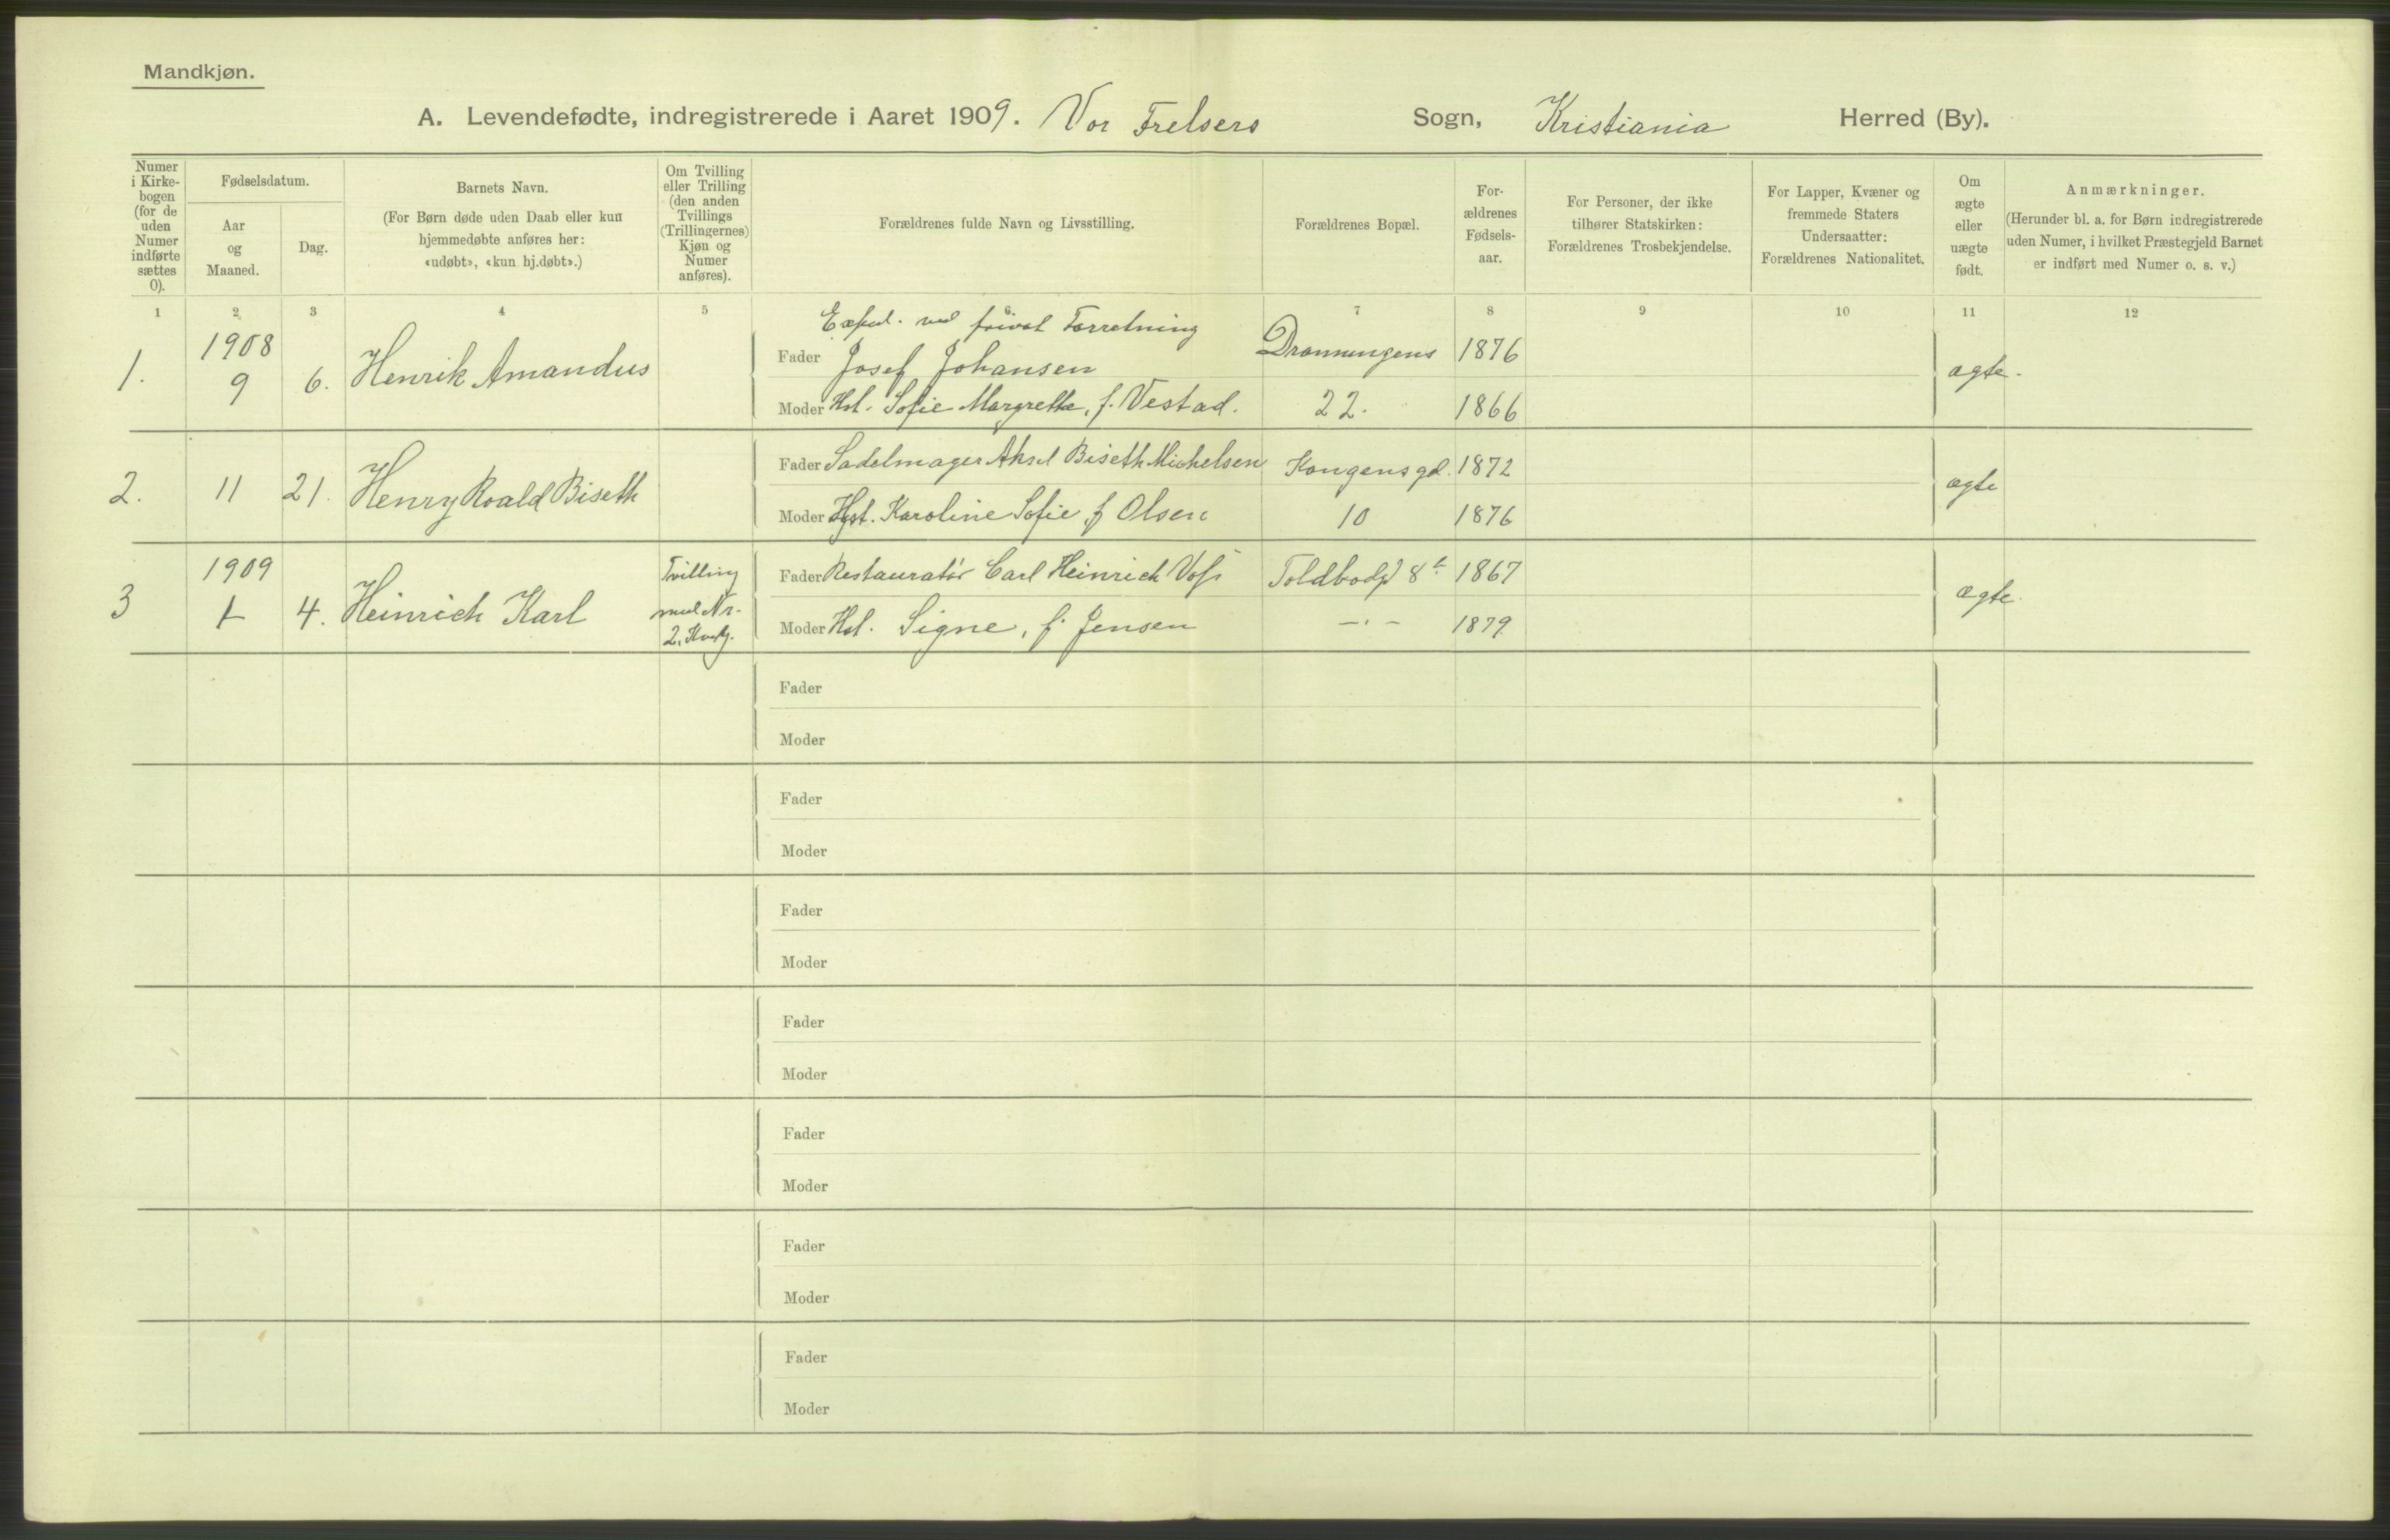 Mandkjøn.
A. Levendefødte, indregistrerede i Aaret 1909. Vor Frelsers Sogn, Kristiania Herred (By).
Numer i Kirke-bogen (for de uden Numer indførte sættes 0).
Fødselsdatum.
Aar og Maaned.
Dag.
Barnets Navn.
(For Børn døde uden Daab eller kun hjemmedøbte anføres her: «udøbt», «kun hj.døbt».)
Om Tvilling eller Trilling (den anden Tvillings (Trillingernes) Kjøn og Numer anføres).
Forældrenes fulde Navn og Livsstilling.
Forældrenes Bopæl.
For-ældrenes Fødsels-aar.
For Personer, der ikke tilhører Statskirken: Forældrenes Trosbekjendelse.
For Lapper, Kvæner og fremmede Staters Undersaatter: Forældrenes Nationalitet.
Om ægte eller uægte født.
Anmærkninger.
(Herunder bl. a. for Børn indregistrerede uden Numer, i hvilket Præstegjeld Barnet er indført med Numer o. s. v.)
1 2 3 4 5 6 7 8 9 10 11 12
1. 1908 9 6. Henrik Amandus
Exped. ved privat Forretning
Fader Josef Johansen Dronningens 1876 ægte.
Moder Hst. Sofie Margrethe, f. Vestad. 22. 1866
2. 11 21. Henry Roald Biseth
Fader Sadelmager Aksel Biseth Michelsen Kongens gd. 1872 ægte
Moder Hst. Karoline Sofie, f Olsen 10 1876
3 1909 1 4. Heinrich Karl Tvilling med Nr. 2. Kvk.
Fader Restauratør Carl Heinrich Vofs Toldbodgd 8 b 1867 ægte.
Moder Hst. Signe, f. Jensen —"— 1879
Fader
Moder
Fader
Moder
Fader
Moder
Fader
Moder
Fader
Moder
Fader
Moder
Fader
Moder